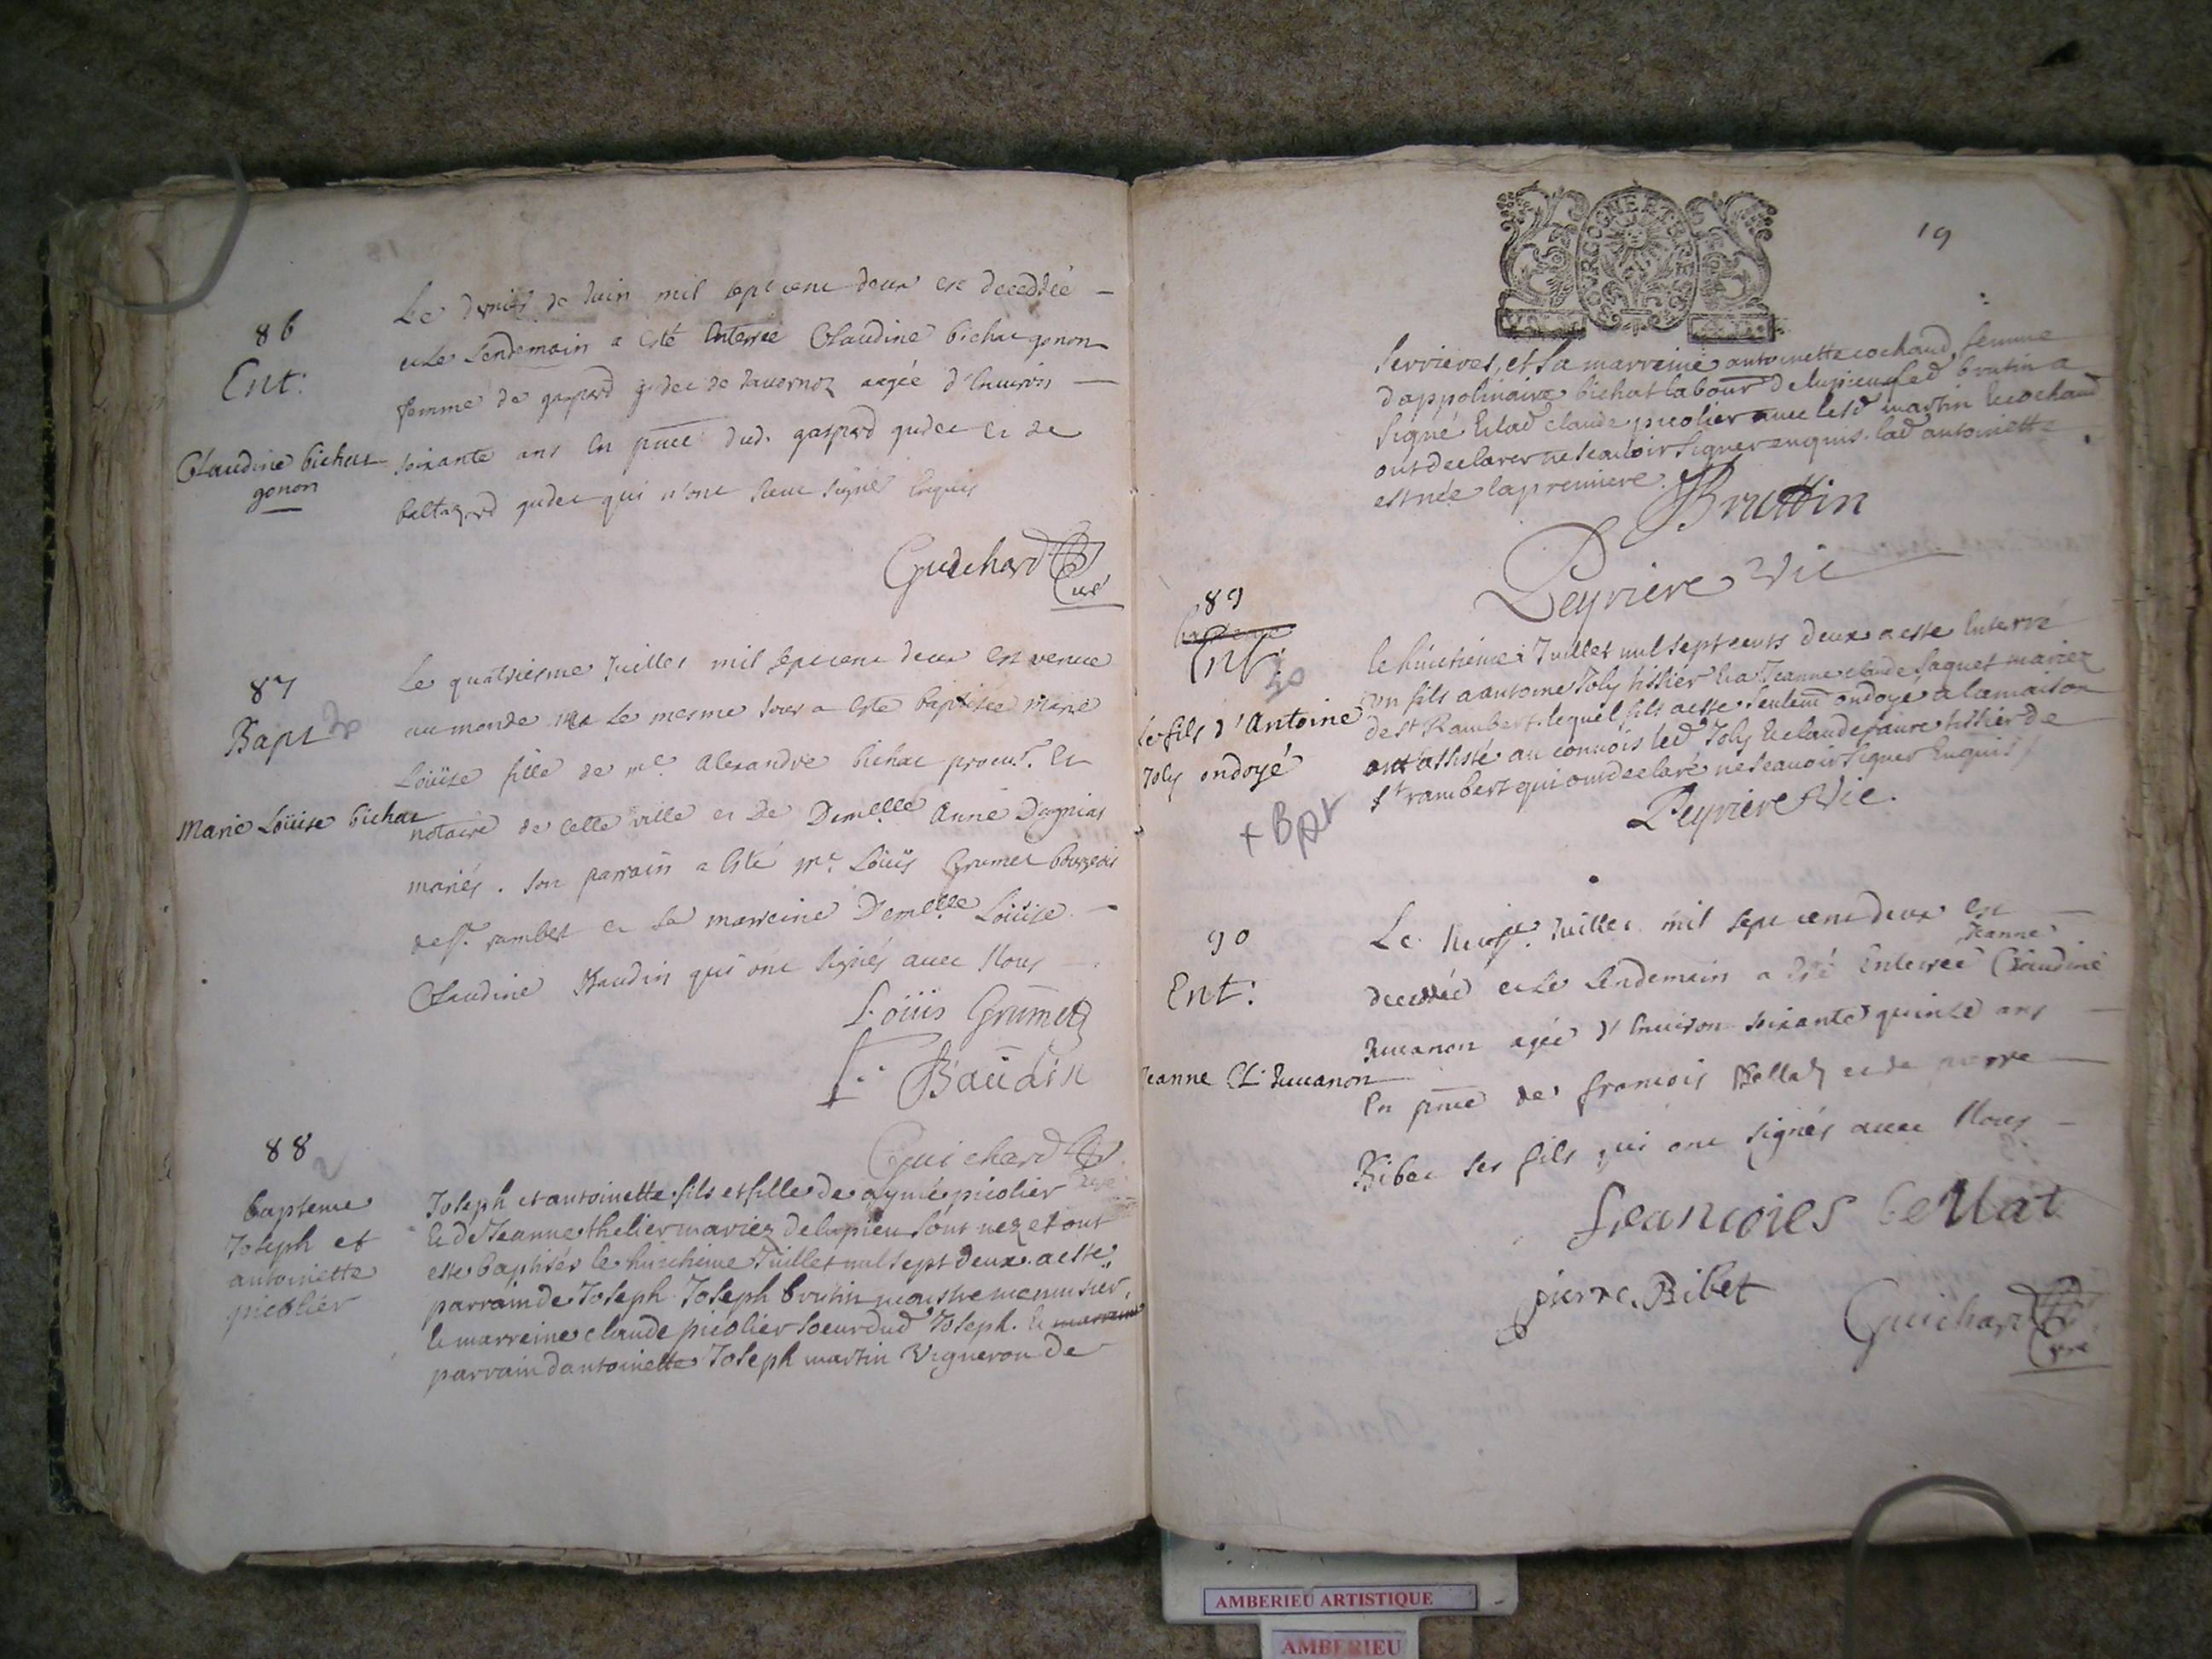 86
Ent:
Claudine bichat
gonon
Le dernier de Juin mil sept cent deux est decedée
et le Lendemain a esté Enterrée Claudine bichat gonon
femme de gaspard gudet de aagée d'Environ
soixante ans En pnce dud. gaspard gudet et de
baltazard gudet qui n'ont sceu signer Enquis
Guichard
Curé
87
Bapt
Marie Loüise bichat
Le quatriesme Juillet mil sept cent deux est venue
au monde et Le mesme Jour a esté baptisée Marie
Loüize fille de me. alexandre bichat procur. Et
notaire de cette ville et De Demlelle Anne Dagnias
mariés. son parrain a esté Mr. Loüis Grumet bourgeois
de St. rambert et sa marreine Demelle Loüise
Claudine Baudin qui ont signés avec Nous
Loüis Grumet
Baudin
Guichard
Curé
88
bapteme
Joseph et
antoinette
picolier
Joseph et antoinette fils et fille de aymé picolier
& de Jeanne thelier mariez de lupieu sont nez et ont
esté baptisés le huictieme Juillet mil sept deux. a esté
parrain de Joseph Joseph brutin maistre menusier,
& marreine claude picolier soeur dud Joseph. & marreine
parrain dantoinette Joseph martin Vigneron de
19
BOURGOGNE
Serrieres, et sa marreine antoinette cochand femme
dappolinaire bichat labour de lupieu led brutin a
signé & lad claude picolier avec lesd martin & cochand
ont declarer ne scauoir signer enquis. lad antoinette
est née la premiere.
Bruttin
Peyriere Vic
89
Ent:
le fils d'Antoine
Joly ondoyé
+ Bpt
le huictieme Juillet mil sept cents deux a esté Enterré
un fils a antoine Joly tissier & a Jeanne claude Saquet mariez
de St Rambert. lequel fils a esté seulemt ondoyé a la maison
ont assisté au connois led Joly & claude faure tissier de
St rambert qui ont declaré ne scauoir signer Enquis
Peyriere Vic.
90
Ent:
Jeanne Cl. Juuanon
Le Juillet mil sept cent deux est
decedée et le Lendemain a esté Enterrée Jeanne Claudine
Juuanon agée d'Enuiron soixante quinze ans
En pnce de francois Bellat et de pierre
Bibet ses fils qui ont signés avec Nous
francoies bellat
pierre. Bibet
Guichard
Curé
AMBERIEU ARTISTIQUE
AMBERIEU